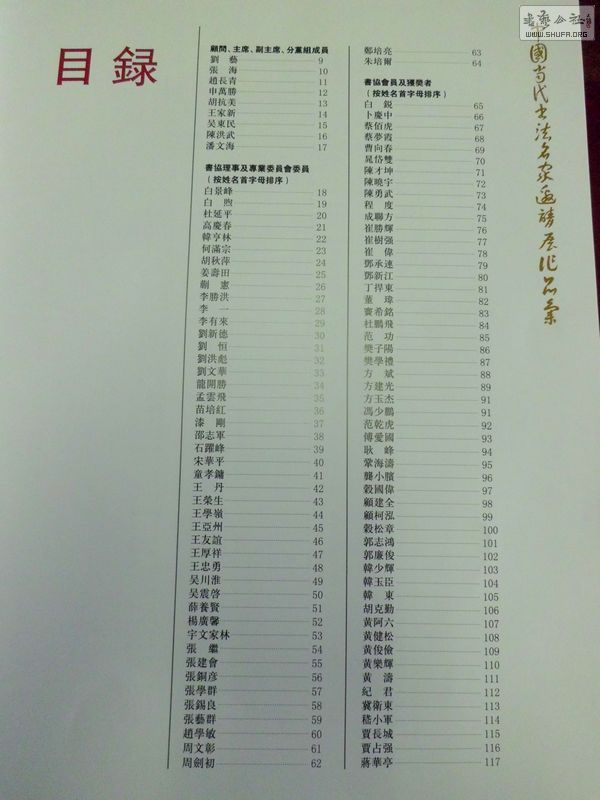 書藝公社
WWW.SHUFA.ORG
目録
顧問、主席、副主席、分黨組成員
劉 藝 9
張 海 10
趙長青 11
申萬勝 12
胡抗美 13
王家新 14
吴東民 15
陳洪武 16
潘文海 17
書協理事及專業委員會委員
（按姓名首字母排序）
白景峰 18
白 煦 19
杜延平 20
高慶春 21
韓亨林 22
何滿宗 23
胡秋萍 24
姜壽田 25
蒯 憲 26
李勝洪 27
李 一 28
李有來 29
劉新德 30
劉 恒 31
劉洪彪 32
劉文華 33
龍開勝 34
孟雲飛 35
苗培紅 36
漆 剛 37
邵志軍 38
石躍峰 39
宋華平 40
童孝鏞 41
王 丹 42
王榮生 43
王學嶺 44
王亞州 45
王友誼 46
王厚祥 47
王忠勇 48
吴川淮 49
吴震啓 50
薛養賢 51
楊廣馨 52
宇文家林 53
張 繼 54
張建會 55
張銅彦 56
張學群 57
張錫良 58
張藝群 59
趙學敏 60
周文彰 61
周劍初 62
鄭培亮 63
朱培爾 64
書協會員及獲獎者
（按姓名首字母排序）
白 鋭 65
卜慶中 66
蔡佰虎 67
蔡夢霞 68
曹向春 69
晁岱雙 70
陳才坤 71
陳曉宇 72
陳勇武 73
程 度 74
成聯方 75
崔勝輝 76
崔樹强 77
崔 偉 78
鄧承連 79
鄧新江 80
丁捍東 81
董 瑋 82
竇希銘 83
杜鵬飛 84
范 功 85
樊子陽 86
樊學禮 87
方 斌 88
方建光 89
方玉杰 91
馮少鵬 91
范乾虎 92
傅愛國 93
耿 峰 94
鞏海濤 95
龔小臏 96
毂國偉 97
顧建全 98
顧柯泓 99
毂松章 100
郭志鴻 101
郭廉俊 102
韓少輝 103
韓玉臣 104
韓 東 105
胡克勤 106
黄阿六 107
黄健松 108
黄俊儉 109
黄樂輝 110
黄 濤 111
紀 君 112
冀衛東 113
嵇小軍 114
賈長城 115
賈占强 116
蔣華亭 117
中國當代書法名家邀請展作品集